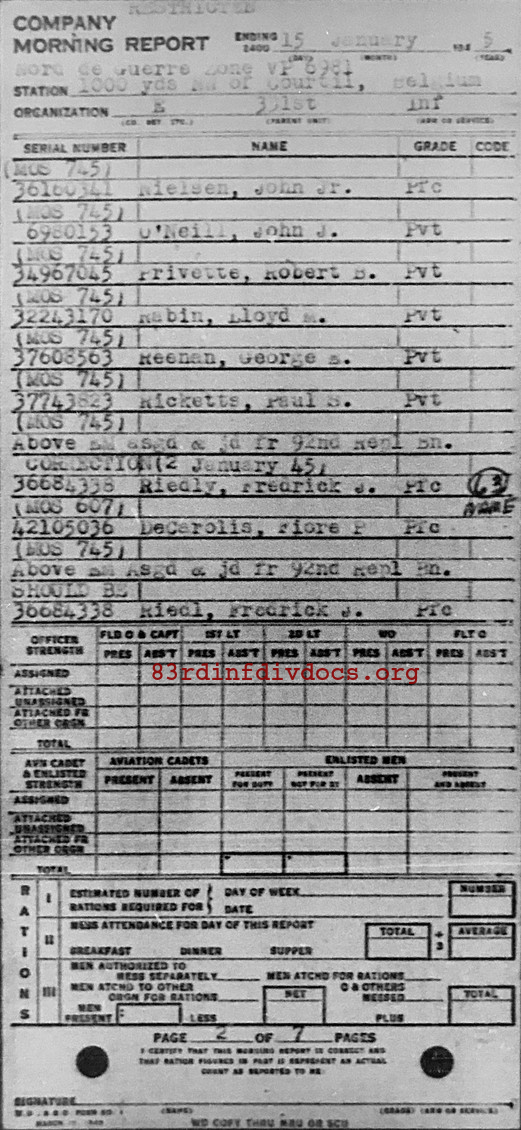 RESTRICTED
COMPANY
MORNING REPORT ENDING 2400 15 January 194 5
(DAY) (MONTH) (YEAR)
Nord de Guerre Zone VP 6981
STATION 1000 yds NW of Courtil, Belgium
ORGANIZATION E 331st Inf
(CO. DET. ETC.) (PARENT UNIT) (ARM OR SERVICE)
SERIAL NUMBER NAME GRADE CODE
(MOS 745)
36160341 Nielsen, John Jr. Pfc
(MOS 745)
6980153 O'Neill, John J. Pvt
(MOS 745)
34967045 Privette, Robert B. Pvt
(MOS 745)
32243170 Rabin, Lloyd M. Pvt
(MOS 745)
37608563 Reenan, George E. Pvt
(MOS 745)
37743823 Ricketts, Paul S. Pvt
(MOS 745)
Above EM asgd & jd fr 92nd Repl Bn.
CORRECTION(2 January 45)
36684338 Riedly, Fredrick J. Pfc 63
(MOS 607) NAME
42105036 DeCarolis, Fiore P Pfc
(MOS 745)
Above EM Asgd & jd fr 92nd Repl Bn.
SHOULD BE
36684338 Riedl, Fredrick J. Pfc
OFFICER STRENGTH FLD O & CAPT 1ST LT 2D LT WO FLT O
PRES ABS'T PRES ABS'T PRES ABS'T PRES ABS'T PRES ABS'T
ASSIGNED
83rdinfdivdocs.org
ATTACHED UNASSIGNED
ATTACHED FR OTHER ORGN
TOTAL
AVN CADET & ENLISTED STRENGTH AVIATION CADETS ENLISTED MEN
PRESENT ABSENT PRESENT FOR DUTY PRESENT NOT FOR DY ABSENT PRESENT AND ABSENT
ASSIGNED
ATTACHED UNASSIGNED
ATTACHED FR OTHER ORGN
TOTAL
RATIONS
I ESTIMATED NUMBER OF RATIONS REQUIRED FOR { DAY OF WEEK NUMBER
DATE
II MESS ATTENDANCE FOR DAY OF THIS REPORT TOTAL ÷ 3 AVERAGE
BREAKFAST DINNER SUPPER
III MEN AUTHORIZED TO MESS SEPARATELY MEN ATCHD FOR RATIONS
MEN ATCHD TO OTHER ORGN FOR RATIONS NET O & OTHERS MESSED TOTAL
MEN PRESENT LESS PLUS
PAGE 2 OF 7 PAGES
I CERTIFY THAT THIS MORNING REPORT IS CORRECT AND
THAT RATION FIGURES IN PART III REPRESENT AN ACTUAL
COUNT AS REPORTED TO ME
SIGNATURE
W.D., A.G.O. FORM NO. 1 (NAME) (GRADE) (ARM OR SERVICE)
WD COPY THRU MRU OR SCU